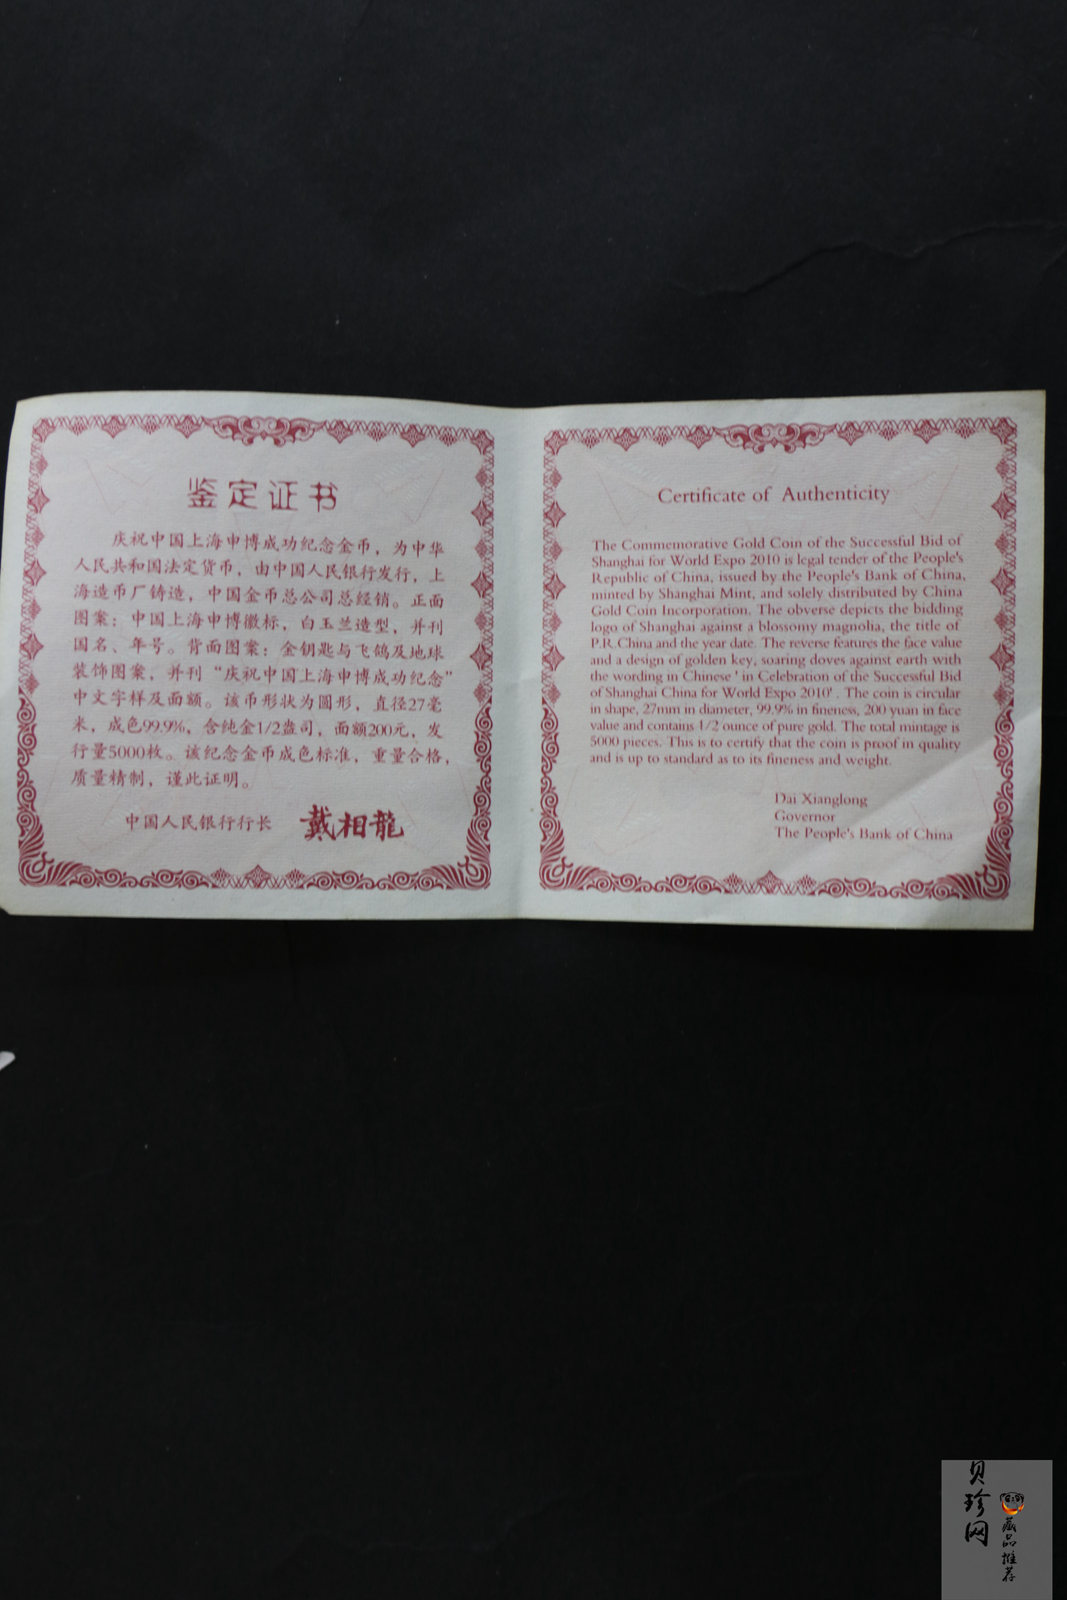 鉴定证书
庆祝中国上海申博成功纪念金币，为中华
人民共和国法定货币，由中国人民银行发行，上
海造币厂铸造，中国金币总公司总经销。正面
图案：中国上海申博徽标，白玉兰造型，并刊
国名、年号。背面图案：金钥匙与飞鸽及地球
装饰图案，并刊“庆祝中国上海申博成功纪念”
中文字样及面额。该币形状为圆形，直径27毫
米，成色99.9%，含纯金1/2盎司，面额200元，发
行量5000枚。该纪念金币成色标准，重量合格，
质量精制，谨此证明。
中国人民银行行长 戴相龍
Certificate of Authenticity
The Commemorative Gold Coin of the Successful Bid of
Shanghai for World Expo 2010 is legal tender of the People's
Republic of China, issued by the People's Bank of China,
minted by Shanghai Mint, and solely distributed by China
Gold Coin Incorporation. The obverse depicts the bidding
logo of Shanghai against a blossomy magnolia, the title of
P.R.China and the year date. The reverse features the face value
and a design of golden key, soaring doves against earth with
the wording in Chinese ' in Celebration of the Successful Bid
of Shanghai China for World Expo 2010' . The coin is circular
in shape, 27mm in diameter, 99.9% in fineness, 200 yuan in face
value and contains 1/2 ounce of pure gold. The total mintage is
5000 pieces. This is to certify that the coin is proof in quality
and is up to standard as to its fineness and weight.
Dai Xianglong
Governor
The People's Bank of China
贝珍网
藏品推荐